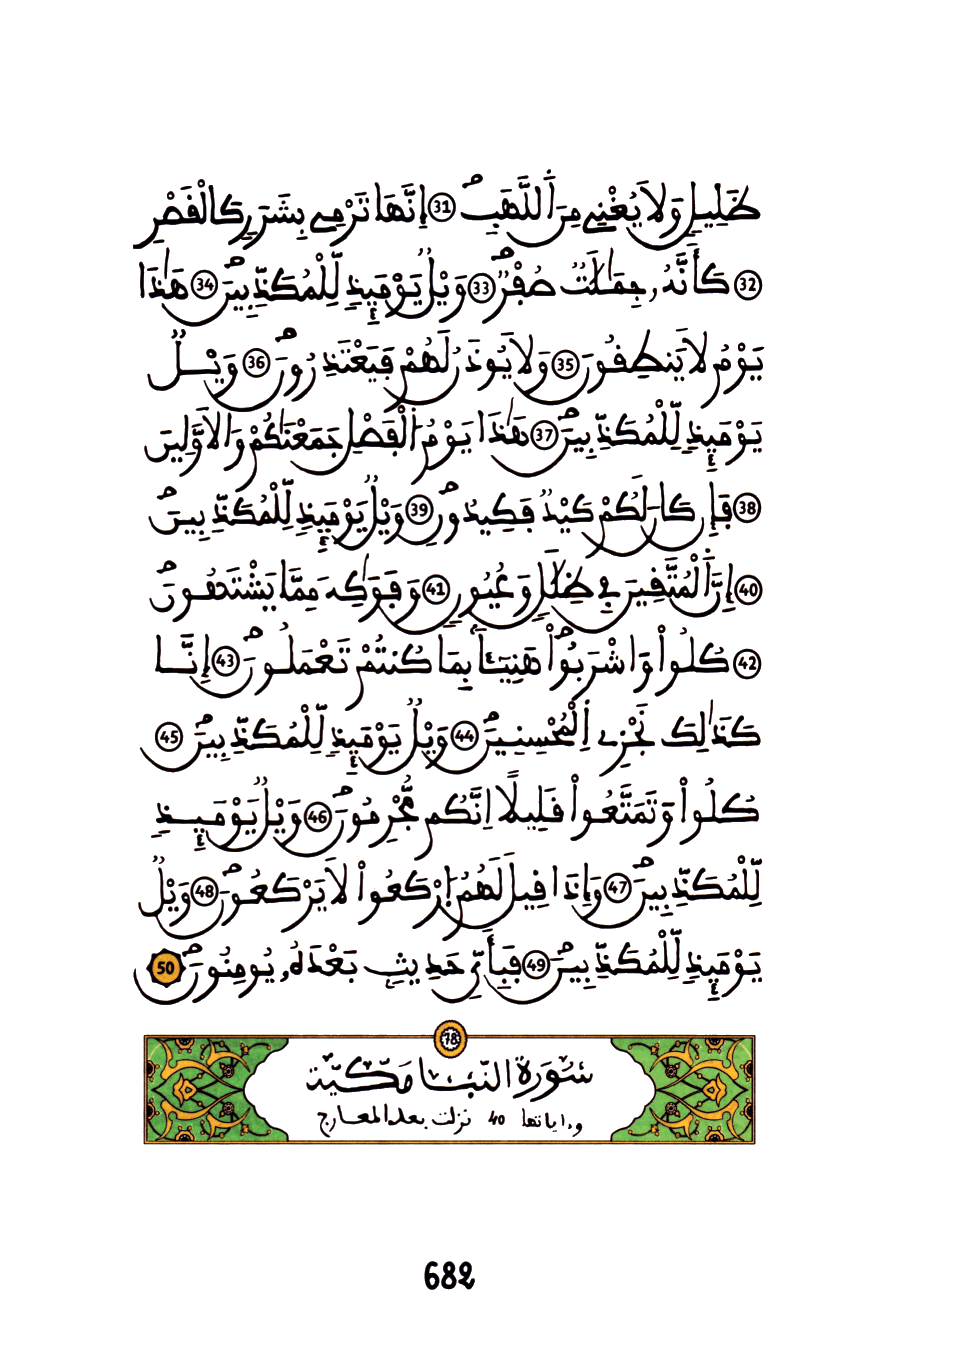 ظَلِيلٍ وَلَا يُغْنِے مِنَ اَ۬للَّهَبِ ۖ 31 إِنَّهَا تَرْمِے بِشَرَرٍ كَالْقَصْرِ
32 كَأَنَّهُۥ جِمَٰلَٰتٌ صُفْرٌ ۖ 33 وَيْلٌ يَوْمَئِذٍ لِّلْمُكَذِّبِينَ ۖ 34 هَٰذَا
يَوْمُ لَا يَنطِقُونَ 35 وَلَا يُوذَنُ لَهُمْ فَيَعْتَذِرُونَ ۖ 36 وَيْلٌ
يَوْمَئِذٍ لِّلْمُكَذِّبِينَ ۖ 37 هَٰذَا يَوْمُ اُ۬لْفَصْلِ جَمَعْنَٰكُمْ وَالَاوَّلِينَ
38 فَإِن كَانَ لَكُمْ كَيْدٌ فَكِيدُونِ ۖ 39 وَيْلٌ يَوْمَئِذٍ لِّلْمُكَذِّبِينَ ۖ
40 إِنَّ اَ۬لْمُتَّقِينَ فِے ظِلَٰلٍ وَعُيُونٍ 41 وَفَوَٰكِهَ مِمَّا يَشْتَهُونَ ۖ
42 كُلُواْ وَاشْرَبُواْ ۖ هَنِيٓـٔاَۢ بِمَا كُنتُمْ تَعْمَلُونَ ۖ 43 إِنَّا
كَذَٰلِكَ نَجْزِے اِ۬لْمُحْسِنِينَ ۖ 44 وَيْلٌ يَوْمَئِذٍ لِّلْمُكَذِّبِينَ ۖ 45
كُلُواْ وَتَمَتَّعُواْ قَلِيلًا اِنَّكُم مُّجْرِمُونَ ۖ 46 وَيْلٌ يَوْمَئِذٍ
لِّلْمُكَذِّبِينَ ۖ 47 وَإِذَا قِيلَ لَهُمُ اُ۪رْكَعُواْ لَا يَرْكَعُونَ ۖ 48 وَيْلٌ
يَوْمَئِذٍ لِّلْمُكَذِّبِينَ ۖ 49 فَبِأَيِّ حَدِيثٍ بَعْدَهُۥ يُومِنُونَ ۖ 50
78
سُورَةُ النَّبَإِ مَكِّيَّة
وءاياتها 40 نزلت بعد المعارج
682